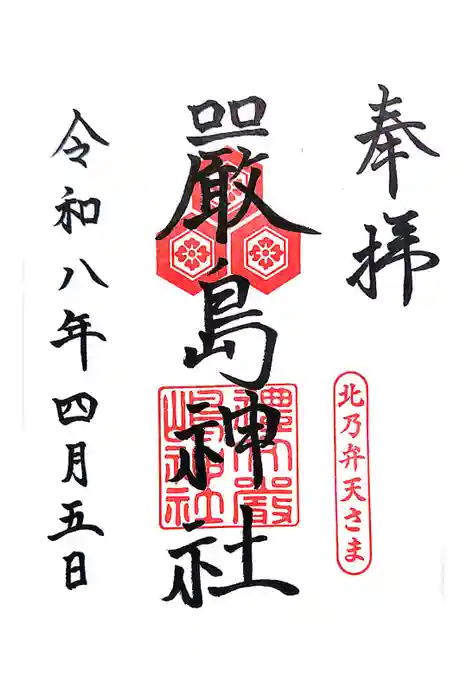 奉拝
北乃弁天さま
嚴島神社
令和八年四月五日